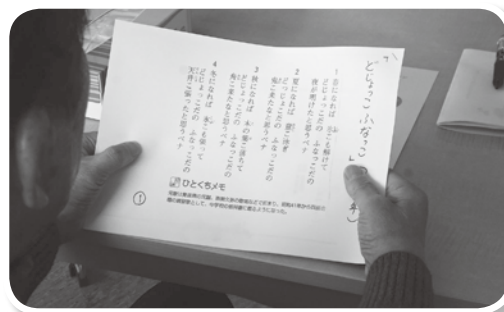 どじょっこ ふなっこ
1
春になれば 氷こも解けて
どじょっこだの ふなっこだの
夜が明けたと思うベナ
2
夏になれば 童こ泳ぎ
どじょっこだの ふなっこだの
鬼こ来たなと思うベナ
3
秋になれば 木の葉こ落ちて
どじょっこだの ふなっこだの
舟こ来たなと思うベナ
4
冬になれば 氷こも張って
どじょっこだの ふなっこだの
天井こ張ったと思うベナ
ひとくちメモ
①